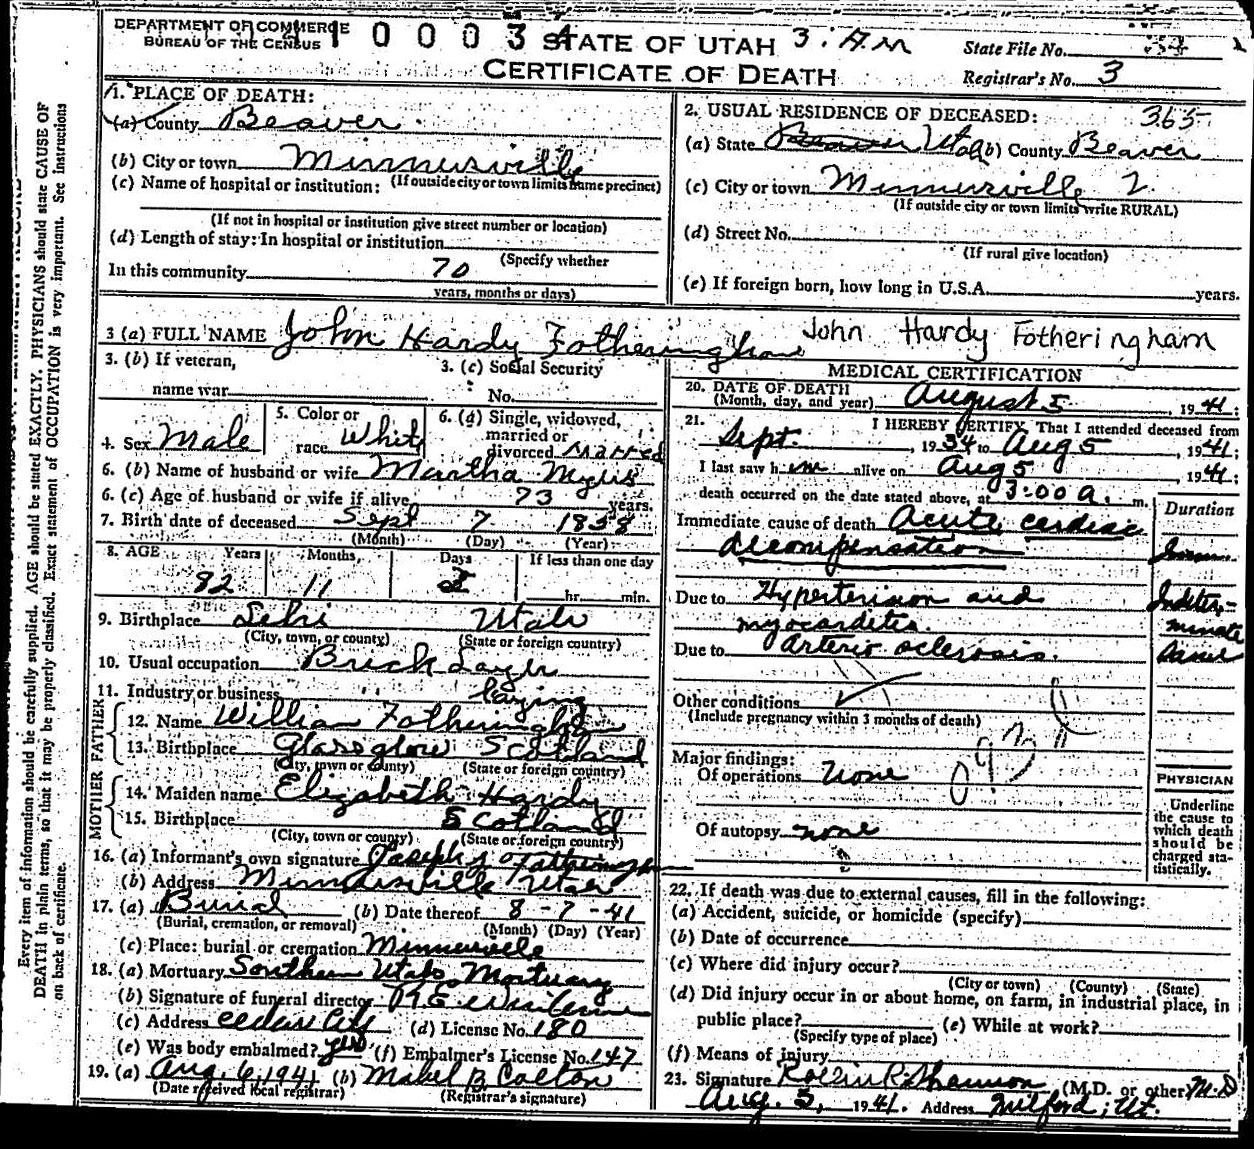 DEPARTMENT OF COMMERCE
BUREAU OF THE CENSUS
1 0 0 0 3 4
STATE OF UTAH 3:A.M
CERTIFICATE OF DEATH
State File No.
Registrar's No. 3
1. PLACE OF DEATH:
(a) County Beaver
(b) City or town Minnersville
(If outside city or town limits name precinct)
(c) Name of hospital or institution:
(If not in hospital or institution give street number or location)
(d) Length of stay: In hospital or institution
(Specify whether
In this community 70
years, months or days)
2. USUAL RESIDENCE OF DECEASED: 365
(a) State Beaver Utah (b) County Beaver
(c) City or town Minnersville 2
(If outside city or town limits write RURAL)
(d) Street No.
(If rural give location)
(e) If foreign born, how long in U.S.A. years.
3 (a) FULL NAME John Hardy Fotheringham John Hardy Fotheringham
3. (b) If veteran,
name war
3. (c) Social Security
No.
4. Sex Male
5. Color or
race White
6. (a) Single, widowed,
married or
divorced Married
6. (b) Name of husband or wife Martha
6. (c) Age of husband or wife if alive 73 years.
7. Birth date of deceased Sept 7 1858
(Month) (Day) (Year)
8. AGE Years Months Days If less than one day
82 11 hr. min.
9. Birthplace Lehi Utah
(City, town, or county) (State or foreign country)
10. Usual occupation Brick Layer
11. Industry or business laying
FATHER
12. Name William Fotheringham
13. Birthplace Glassglow Scotland
(City, town or county) (State or foreign country)
MOTHER
14. Maiden name Elizabeth Hardy
15. Birthplace Scotland
(City, town or county) (State or foreign country)
16. (a) Informant's own signature Joseph J Fotheringham
(b) Address Minnersville Utah
17. (a) Burial (b) Date thereof 8 - 7 - 41
(Burial, cremation, or removal) (Month) (Day) (Year)
(c) Place: burial or cremation Minnersville
18. (a) Mortuary Southern Utah Mortuary
(b) Signature of funeral director
(c) Address Cedar City (d) License No. 180
(e) Was body embalmed? yes (f) Embalmer's License No. 147
19. (a) Aug. 6, 1941 (b) Mabel B Colton
(Date received local registrar) (Registrar's signature)
MEDICAL CERTIFICATION
20. DATE OF DEATH
(Month, day, and year) August 5, 1941;
21. I HEREBY CERTIFY, That I attended deceased from
Sept. , 1934 to Aug 5 , 1941;
I last saw him alive on Aug 5 , 1941;
death occurred on the date stated above, at 3:00 A. m.
Duration
Immediate cause of death Acute cardiac
decompensation
Due to Hypertension and Indeter-
myocarditis. minate
Due to Arterio sclerosis. Same
Other conditions
(Include pregnancy within 3 months of death)
093
Major findings:
Of operations None
Of autopsy none
PHYSICIAN
Underline
the cause to
which death
should be
charged sta-
tistically.
22. If death was due to external causes, fill in the following:
(a) Accident, suicide, or homicide (specify)
(b) Date of occurrence
(c) Where did injury occur?
(City or town) (County) (State)
(d) Did injury occur in or about home, on farm, in industrial place, in
public place? (e) While at work?
(Specify type of place)
(f) Means of injury
23. Signature Rollin R. Shannon (M.D. or other) M.D
Aug. 5, 1941. Address Milford, Ut.
Every item of information should be carefully supplied. AGE should be stated EXACTLY. PHYSICIANS should state CAUSE OF
DEATH in plain terms, so that it may be properly classified. Exact statement of OCCUPATION is very important. See Instructions
on back of certificate.